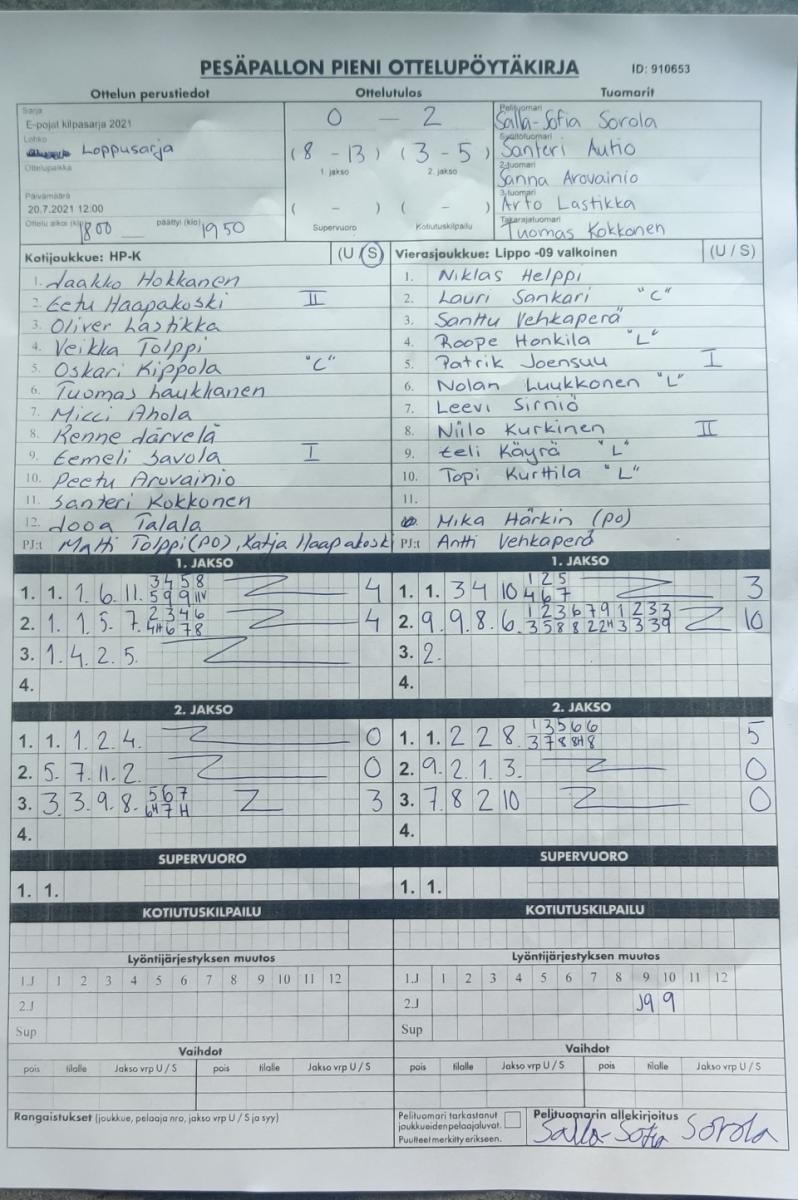 PESÄPALLON PIENI OTTELUPÖYTÄKIRJA ID: 910653
Ottelun perustiedot Ottelutulos Tuomarit
Sarja
E-pojat kilpasarja 2021
Lohko
Loppusarja
Ottelupaikka
Päivämäärä
20.7.2021 12:00
Ottelu alkoi (klo) 1800 päättyi (klo) 1950
0 - 2
(8 - 13) (3 - 5)
1. jakso 2. jakso
( - ) ( - )
Supervuoro Kotiutuskilpailu
Pelituomari
Salla-Sofia Sorola
Syöttötuomari
Santeri Autio
2-tuomari
Sanna Arovainio
3-tuomari
Arto Lastikka
Takarajatuomari
Tuomas Kokkonen
Kotijoukkue: HP-K (U / S)
1. Jaakko Hokkanen
2. Eetu Haapakoski II
3. Oliver Lastikka
4. Veikka Tolppi
5. Oskari Kippola "C"
6. Tuomas Laukkanen
7. Micci Ahola
8. Renne Järvelä
9. Eemeli Savola I
10. Peetu Arovainio
11. Santeri Kokkonen
12. Jooa Talala
PJ:t Matti Tolppi (PO), Katja Haapakoski
Vierasjoukkue: Lippo -09 valkoinen (U / S)
1. Niklas Helppi
2. Lauri Sankari "C"
3. Santtu Vehkaperä
4. Roope Honkila "L"
5. Patrik Joensuu I
6. Nolan Luukkonen "L"
7. Leevi Sirniö
8. Niilo Kurkinen II
9. Eeli Käyrä "L"
10. Topi Kurttila "L"
11.
Mika Härkin (PO)
PJ:t Antti Vehkaperä
1. JAKSO
1. 1. 1. 6. 11. 3 4 5 8 4
5 9 9
2. 1. 1. 5. 7. 2 3 4 6 4
4H 6 7 8
3. 1. 4. 2. 5.
4.
1. JAKSO
1. 1. 3 4 10 1 2 5 3
4 6 7
2. 9. 9. 8. 6. 1 2 3 6 7 9 1 2 3 3 10
3 5 8 8 2 2H 3 3 3 9
3. 2.
4.
2. JAKSO
1. 1. 1. 2. 4. 0
2. 5. 7. 11. 2. 0
3. 3. 3. 9. 8. 5 6 7 3
6H 7 H
4.
2. JAKSO
1. 1. 2 2 8. 1 3 5 6 6 5
3 7 8 8H 8
2. 9. 2. 1. 3. 0
3. 7. 8 2 10 0
4.
SUPERVUORO
1. 1.
SUPERVUORO
1. 1.
KOTIUTUSKILPAILU
KOTIUTUSKILPAILU
Lyöntijärjestyksen muutos
1.J 1 2 3 4 5 6 7 8 9 10 11 12
2.J
Sup
Lyöntijärjestyksen muutos
1.J 1 2 3 4 5 6 7 8 9 10 11 12
2.J 9
Sup
Vaihdot
pois tilalle Jakso vrp U / S pois tilalle Jakso vrp U / S
Vaihdot
pois tilalle Jakso vrp U / S pois tilalle Jakso vrp U / S
Rangaistukset (joukkue, pelaaja nro, jakso vrp U / S ja syy)
Pelituomari tarkastanut
joukkueiden pelaajaluvat.
Puutteet merkitty erikseen.
Pelituomarin allekirjoitus
Salla-Sofia Sorola